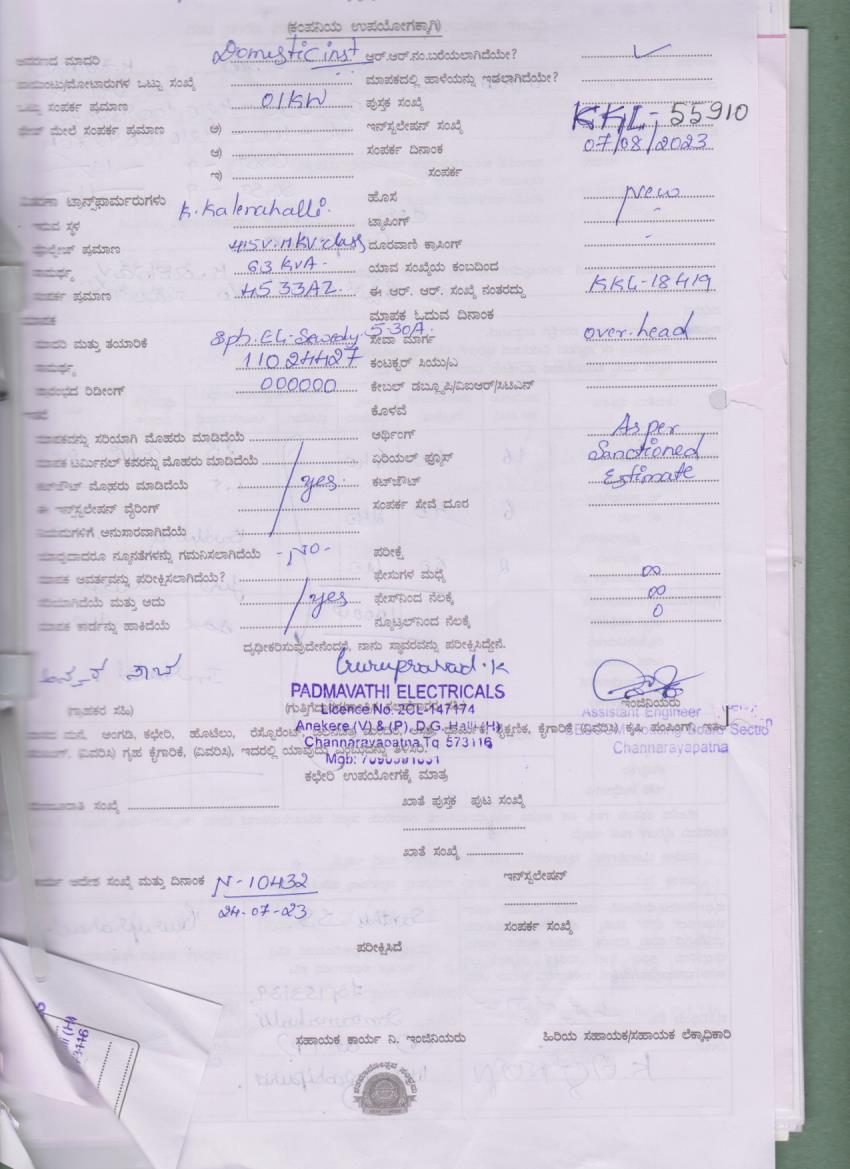 (ಕಂಪನಿಯ ಉಪಯೋಗಕ್ಕಾಗಿ)
ಮಾದರಿ Domestic inst ಆರ್.ಆರ್.ನಂ.ಬರೆಯಲಾಗಿದೆಯೇ? ✓
ಒಟ್ಟು ಸಂಖ್ಯೆ ಮಾಪಕದಲ್ಲಿ ಹಾಳೆಯನ್ನು ಇಡಲಾಗಿದೆಯೇ?
ಒಟ್ಟು ಸಂಪರ್ಕ ಪ್ರಮಾಣ 01KW ಪುಸ್ತಕ ಸಂಖ್ಯೆ
ಮೇಲೆ ಸಂಪರ್ಕ ಪ್ರಮಾಣ ಅ) ಇನ್‌ಸ್ಟಲೇಷನ್ ಸಂಖ್ಯೆ KKL-55910
ಆ) ಸಂಪರ್ಕ ದಿನಾಂಕ 07/08/2023
ಇ) ಸಂಪರ್ಕ
ಟ್ರಾನ್ಸ್‌ಫಾರ್ಮರುಗಳು K.Kalenahalli. ಹೊಸ New
ಇರುವ ಸ್ಥಳ ಟ್ಯಾಪಿಂಗ್ -
ಪ್ರಮಾಣ 415V.11KV.class ದೂರವಾಣಿ ಕ್ರಾಸಿಂಗ್ -
ಸಾಮರ್ಥ್ಯ 63 KVA- ಯಾವ ಸಂಖ್ಯೆಯ ಕಂಬದಿಂದ
ಸಂಪರ್ಕ ಪ್ರಮಾಣ 4533AZ. ಈ ಆರ್. ಆರ್. ಸಂಖ್ಯೆ ನಂತರದ್ದು KKL-18419
ಮಾಪಕ ಮಾಪಕ ಓದುವ ದಿನಾಂಕ
ಮಾದರಿ ಮತ್ತು ತಯಾರಿಕೆ 5-30A. ಸೇವಾ ಮಾರ್ಗ over.head
ಸಾಮರ್ಥ್ಯ 11024427 ಕಂಟಕ್ಟರ್ ಸಿಯು/ಎ
ರಿಡೀಂಗ್ 000000 ಕೇಬಲ್ ಡಬ್ಲ್ಯೂಪಿ/ವಿಐಆರ್/ಸಿಟಿಎಸ್
ಕೊಳವೆ
ಮಾಪಕವನ್ನು ಸರಿಯಾಗಿ ಮೊಹರು ಮಾಡಿದೆಯೆ ಅರ್ಥಿಂಗ್ As per
ಮಾಪಕ ಟರ್ಮಿನಲ್ ಕವರನ್ನು ಮೊಹರು ಮಾಡಿದೆಯೆ ಏರಿಯಲ್ ಫ್ಯೂಸ್ Sanctioned
ಕಟ್‌ಔಟ್ ಮೊಹರು ಮಾಡಿದೆಯೆ yes. ಕಟ್‌ಔಟ್ Estimate
ಈ ಇನ್‌ಸ್ಟಲೇಷನ್ ವೈರಿಂಗ್ ಸಂಪರ್ಕ ಸೇವೆ ದೂರ
ನಿಯಮಗಳಿಗೆ ಅನುಸಾರವಾಗಿದೆಯೆ
ಯಾವುದಾದರೂ ನ್ಯೂನತೆಗಳನ್ನು ಗಮನಿಸಲಾಗಿದೆಯೆ -No- ಪರೀಕ್ಷೆ
ಮಾಪಕ ಆವರ್ತವನ್ನು ಪರೀಕ್ಷಿಸಲಾಗಿದೆಯೆ? ಫೇಸುಗಳ ಮಧ್ಯೆ ∞
ಸರಿಯಾಗಿದೆಯೆ ಮತ್ತು ಅದು yes ಫೇಸ್‌ನಿಂದ ನೆಲಕ್ಕೆ ∞
ಮಾಪಕ ಕಾರ್ಡನ್ನು ಹಾಕಿದೆಯೆ ನ್ಯೂಟ್ರಲ್‌ನಿಂದ ನೆಲಕ್ಕೆ 0
ದೃಢೀಕರಿಸುವುದೇನೆಂದರೆ, ನಾನು ಸ್ಥಾವರವನ್ನು ಪರೀಕ್ಷಿಸಿದ್ದೇನೆ.
Guruprasad.K
PADMAVATHI ELECTRICALS
(ಗ್ರಾಹಕರ ಸಹಿ) Licence No. 2CL-147174 ಇಂಜಿನಿಯರು
Assistant Engineer
Anekere (V) & (P), D.G. Halli (H)
ಮನೆ, ಅಂಗಡಿ, ಕಛೇರಿ, ಹೋಟೆಲು, ರೆಸ್ಟೋರೆಂಟ್, ಶೈಕ್ಷಣಿಕ, ಕೈಗಾರಿಕೆ (ವಿವರಿಸಿ) ಕೃಷಿ ಪಂಪಿಂಗ್
Channarayapatna Tq 573116
(ವಿವರಿಸಿ) ಗೃಹ ಕೈಗಾರಿಕೆ, (ವಿವರಿಸಿ), ಇದರಲ್ಲಿ ಯಾವುದು ಎಂಬುದನ್ನು ತಿಳಿಸಿರಿ.
Channarayapatna
ಕಛೇರಿ ಉಪಯೋಗಕ್ಕೆ ಮಾತ್ರ
ಸಂಖ್ಯೆ ಖಾತೆ ಪುಸ್ತಕ ಪುಟ ಸಂಖ್ಯೆ
ಖಾತೆ ಸಂಖ್ಯೆ
ಆದೇಶ ಸಂಖ್ಯೆ ಮತ್ತು ದಿನಾಂಕ N-10432 ಇನ್‌ಸ್ಟಲೇಷನ್
24-07-23
ಸಂಪರ್ಕ ಸಂಖ್ಯೆ
ಪರೀಕ್ಷಿಸಿದೆ
ಸಹಾಯಕ ಕಾರ್ಯ ನಿ. ಇಂಜಿನಿಯರು ಹಿರಿಯ ಸಹಾಯಕ/ಸಹಾಯಕ ಲೆಕ್ಕಾಧಿಕಾರಿ